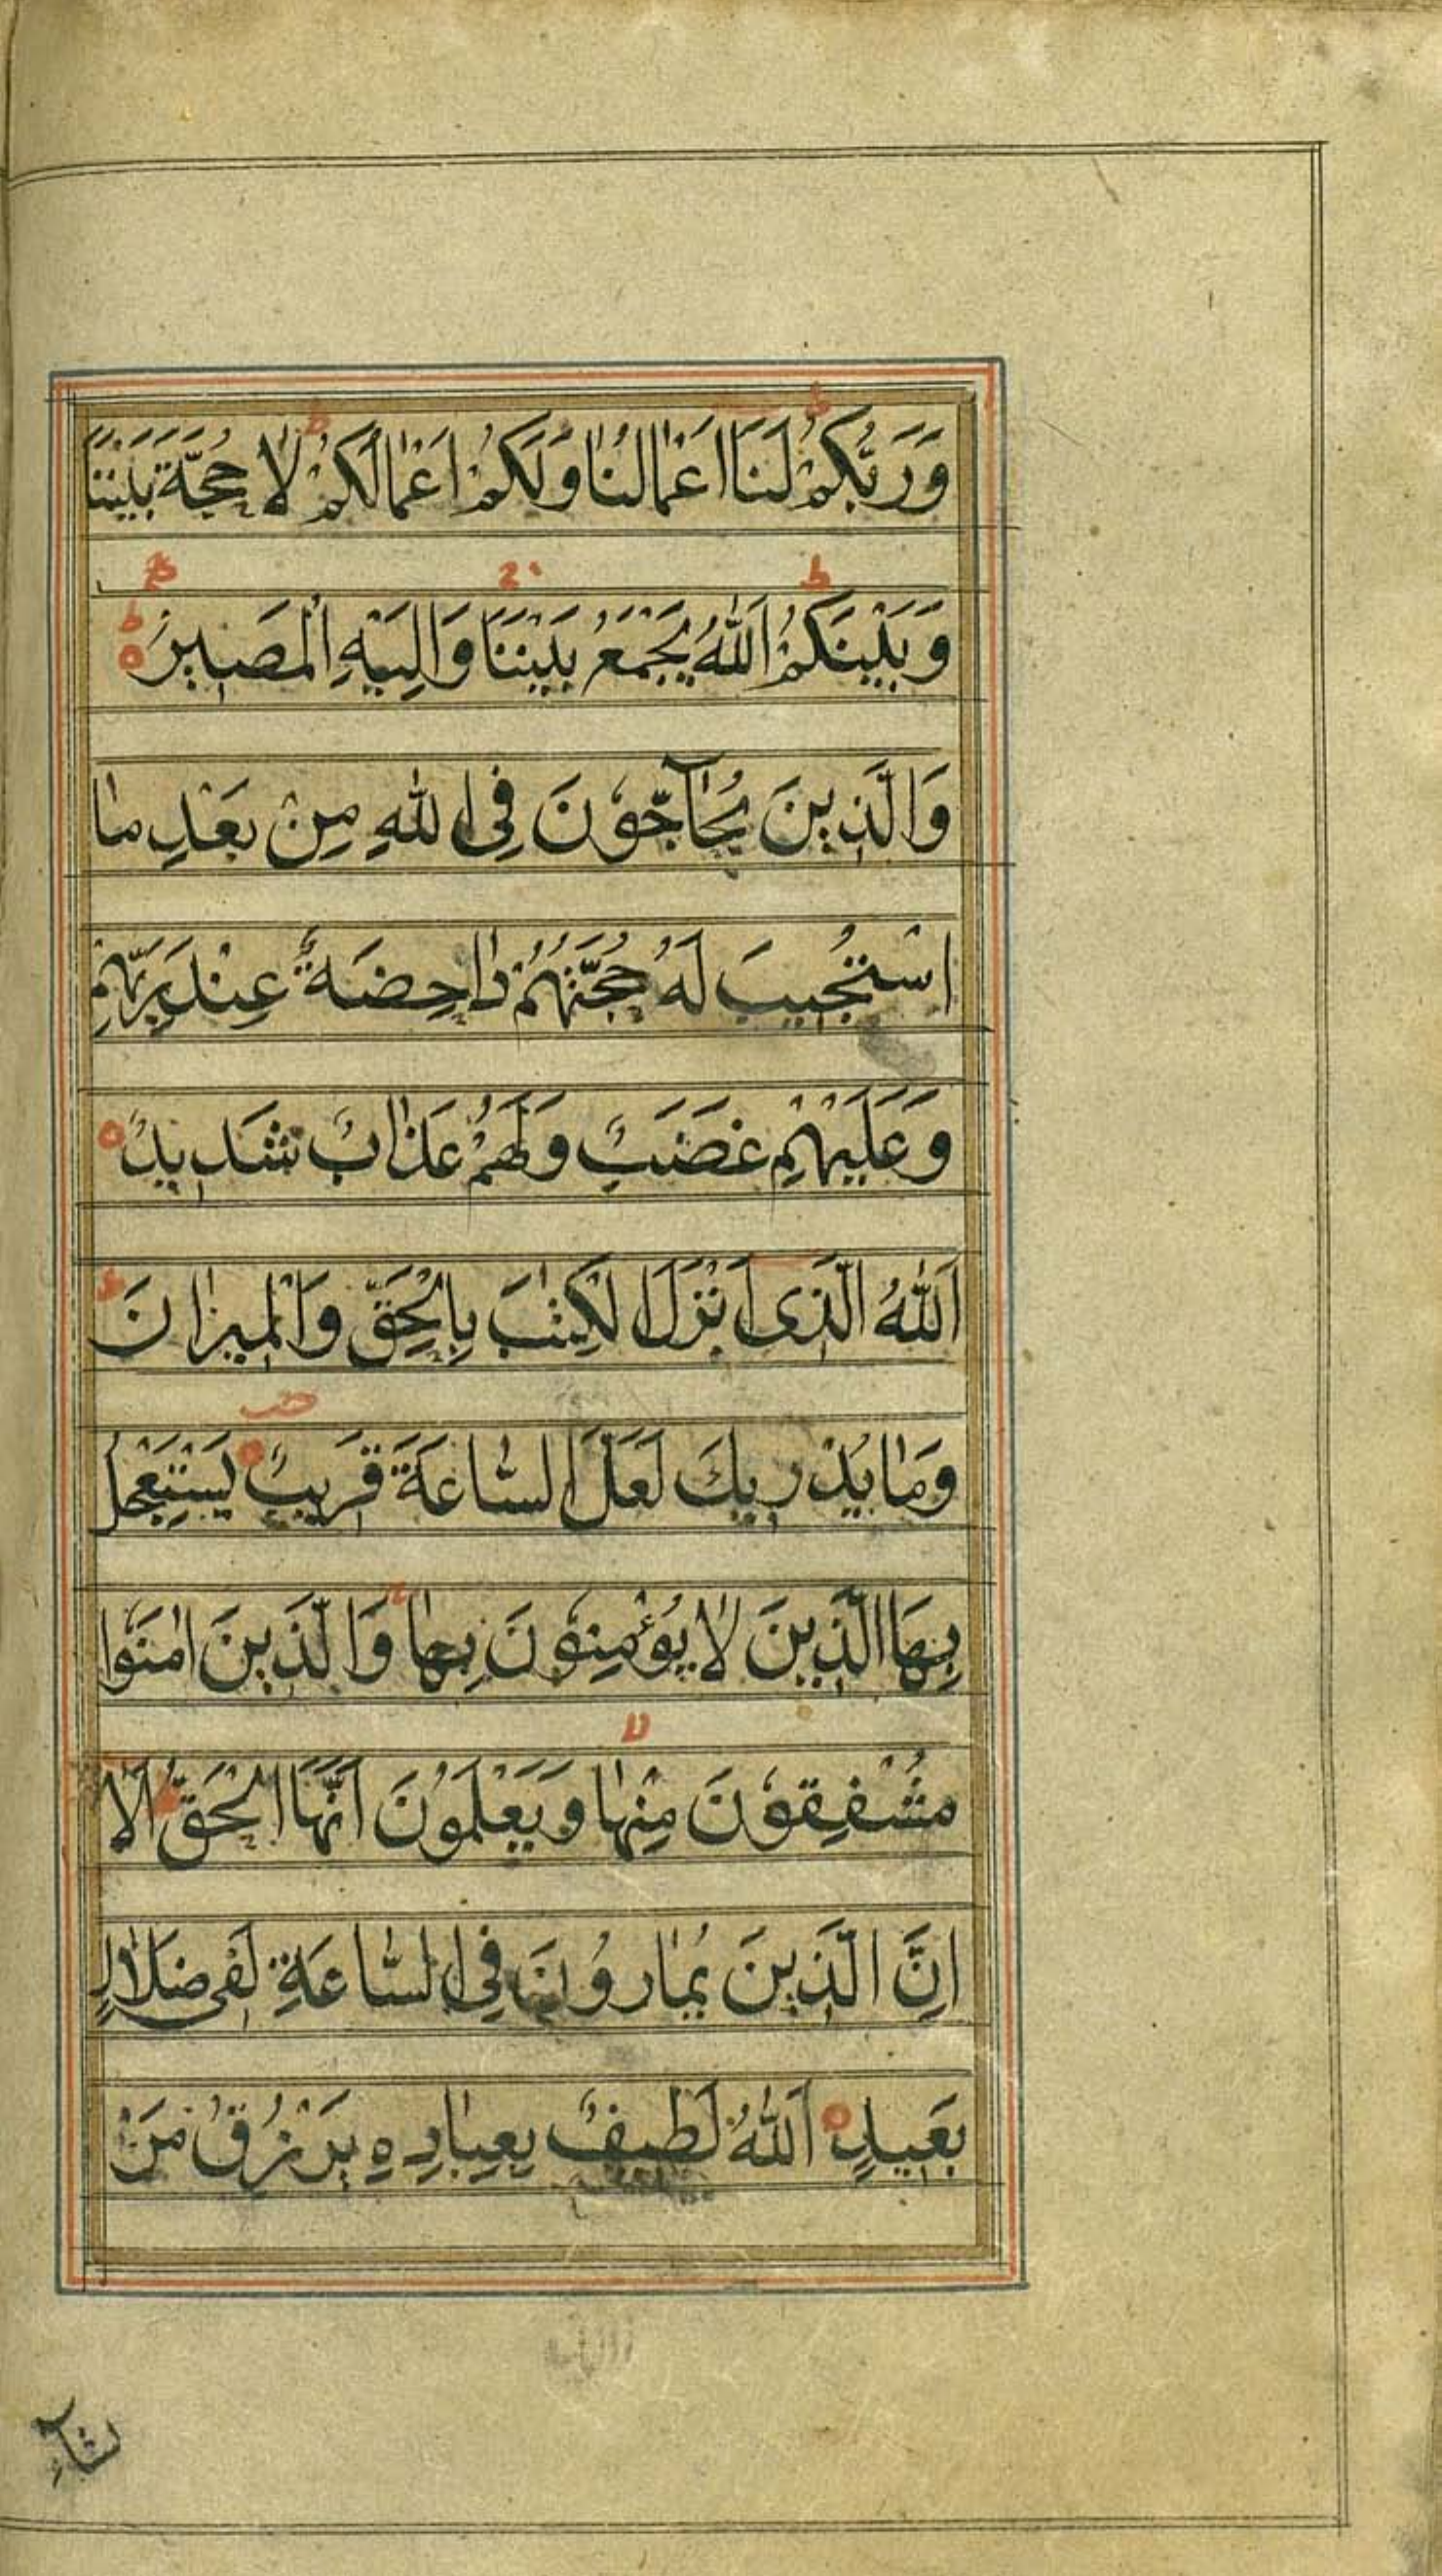 وَرَبُّكُمْ لَنَا اَعْمٰالُنٰا وَلَكُمْ اَعْمٰالُكُمْ لٰا حُجَّةَ بَيْنَنَا
وَبَيْنَكُمُ اَللّٰهُ يَجْمَعُ بَيْنَنَا وَاِلَيْهِ الْمَصِيرُ
وَالَّذِينَ يُحٰآجُّونَ فِي اللّٰهِ مِنْ بَعْدِ مٰا
اسْتُجِيبَ لَهُ حُجَّتُهُمْ دٰاحِضَةٌ عِنْدَ رَبِّهِمْ
وَعَلَيْهِمْ غَضَبٌ وَلَهُمْ عَذٰابٌ شَدِيدٌ
اَللّٰهُ الَّذِى اَنْزَلَ الْكِتٰبَ بِالْحَقِّ وَالْمِيزٰانَ
وَمٰا يُدْرِيكَ لَعَلَّ السّٰاعَةَ قَرِيبٌ يَسْتَعْجِلُ
بِهَا الَّذِينَ لٰا يُؤْمِنُونَ بِهٰا وَالَّذِينَ اٰمَنُوا
مُشْفِقُونَ مِنْهٰا وَيَعْلَمُونَ اَنَّهَا الْحَقُّ اَلٰا
اِنَّ الَّذِينَ يُمٰارُونَ فِي السّٰاعَةِ لَفِى ضَلٰالٍ
بَعِيدٍ اَللّٰهُ لَطِيفٌ بِعِبٰادِهِ يَرْزُقُ مَنْ
يشآء